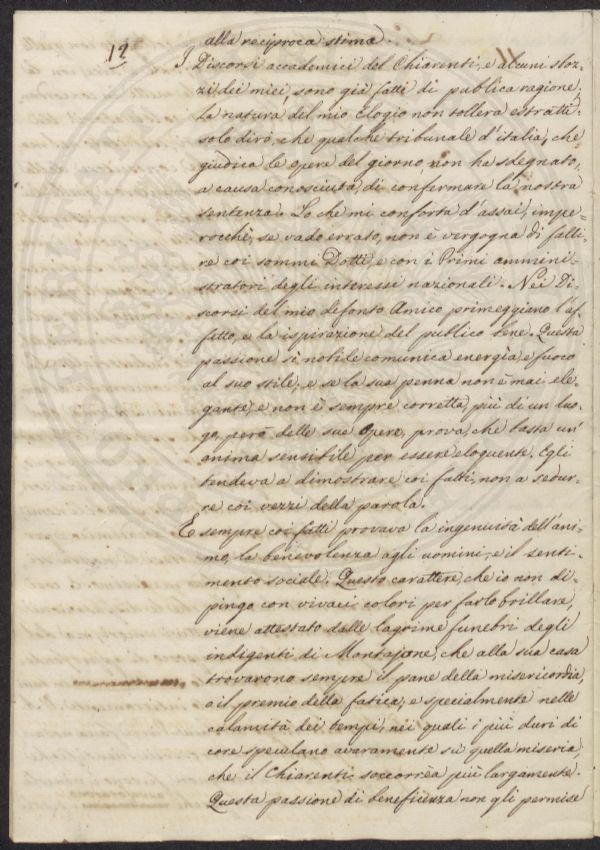 12
alla reciproca stima.
I Discorsi accademici del Chiarenti, e alcuni sfor-
zi dei miei, sono già fatti di publica ragione;
la natura del mio Elogio non tollera estratti:
solo dirò, che qualche tribunale d'italia, che
giudica le opere del giorno, non ha sdegnato,
a causa conosciuta, di confirmare la nostra
sentenza. Lo che mi conforta d'assai, impe-
rocchè, se vado errato, non è vergogna di falli-
re coi sommi Dotti, e con i Primi ammini-
stratori degli interessi nazionali. Nei Di-
scorsi del mio defonto Amico primeggiano l'af-
fetto, e la ispirazione del publico bene. Questa
passione sì nobile comunica energia, e fuoco
al suo stile; e se la sua penna non è mai ele-
gante, e non è sempre corretta, più di un luo-
go, però delle sue Opere, prova, che basta un'
anima sensibile per essere eloquente. Egli
tendeva a dimostrare coi fatti, non a sedur-
re coi vezzi della parola.
E sempre coi fatti provava la ingenuità dell'ani-
mo, la benevolenza agli uomini, e il senti-
mento sociale. Questo carattere, che io non di-
pingo con vivaci colori per farlo brillare,
viene attestato dalle lagrime funebri degli
indigenti di Montajone, che alla sua casa
trovarono sempre il pane della misericordia,
o il premio della fatica; e specialmente nelle
calamità dei tempi, nei quali i più duri di
core speculano avaramente su quella miseria,
che il Chiarenti soccorrèa più largamente.
Questa passione di beneficenza non gli permise